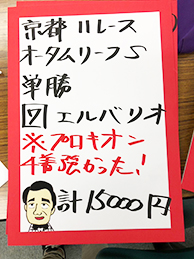 京都11レース
オータムリーフS
単勝
図エルバリオ
※プロキオン
4着強かった!
計15000円